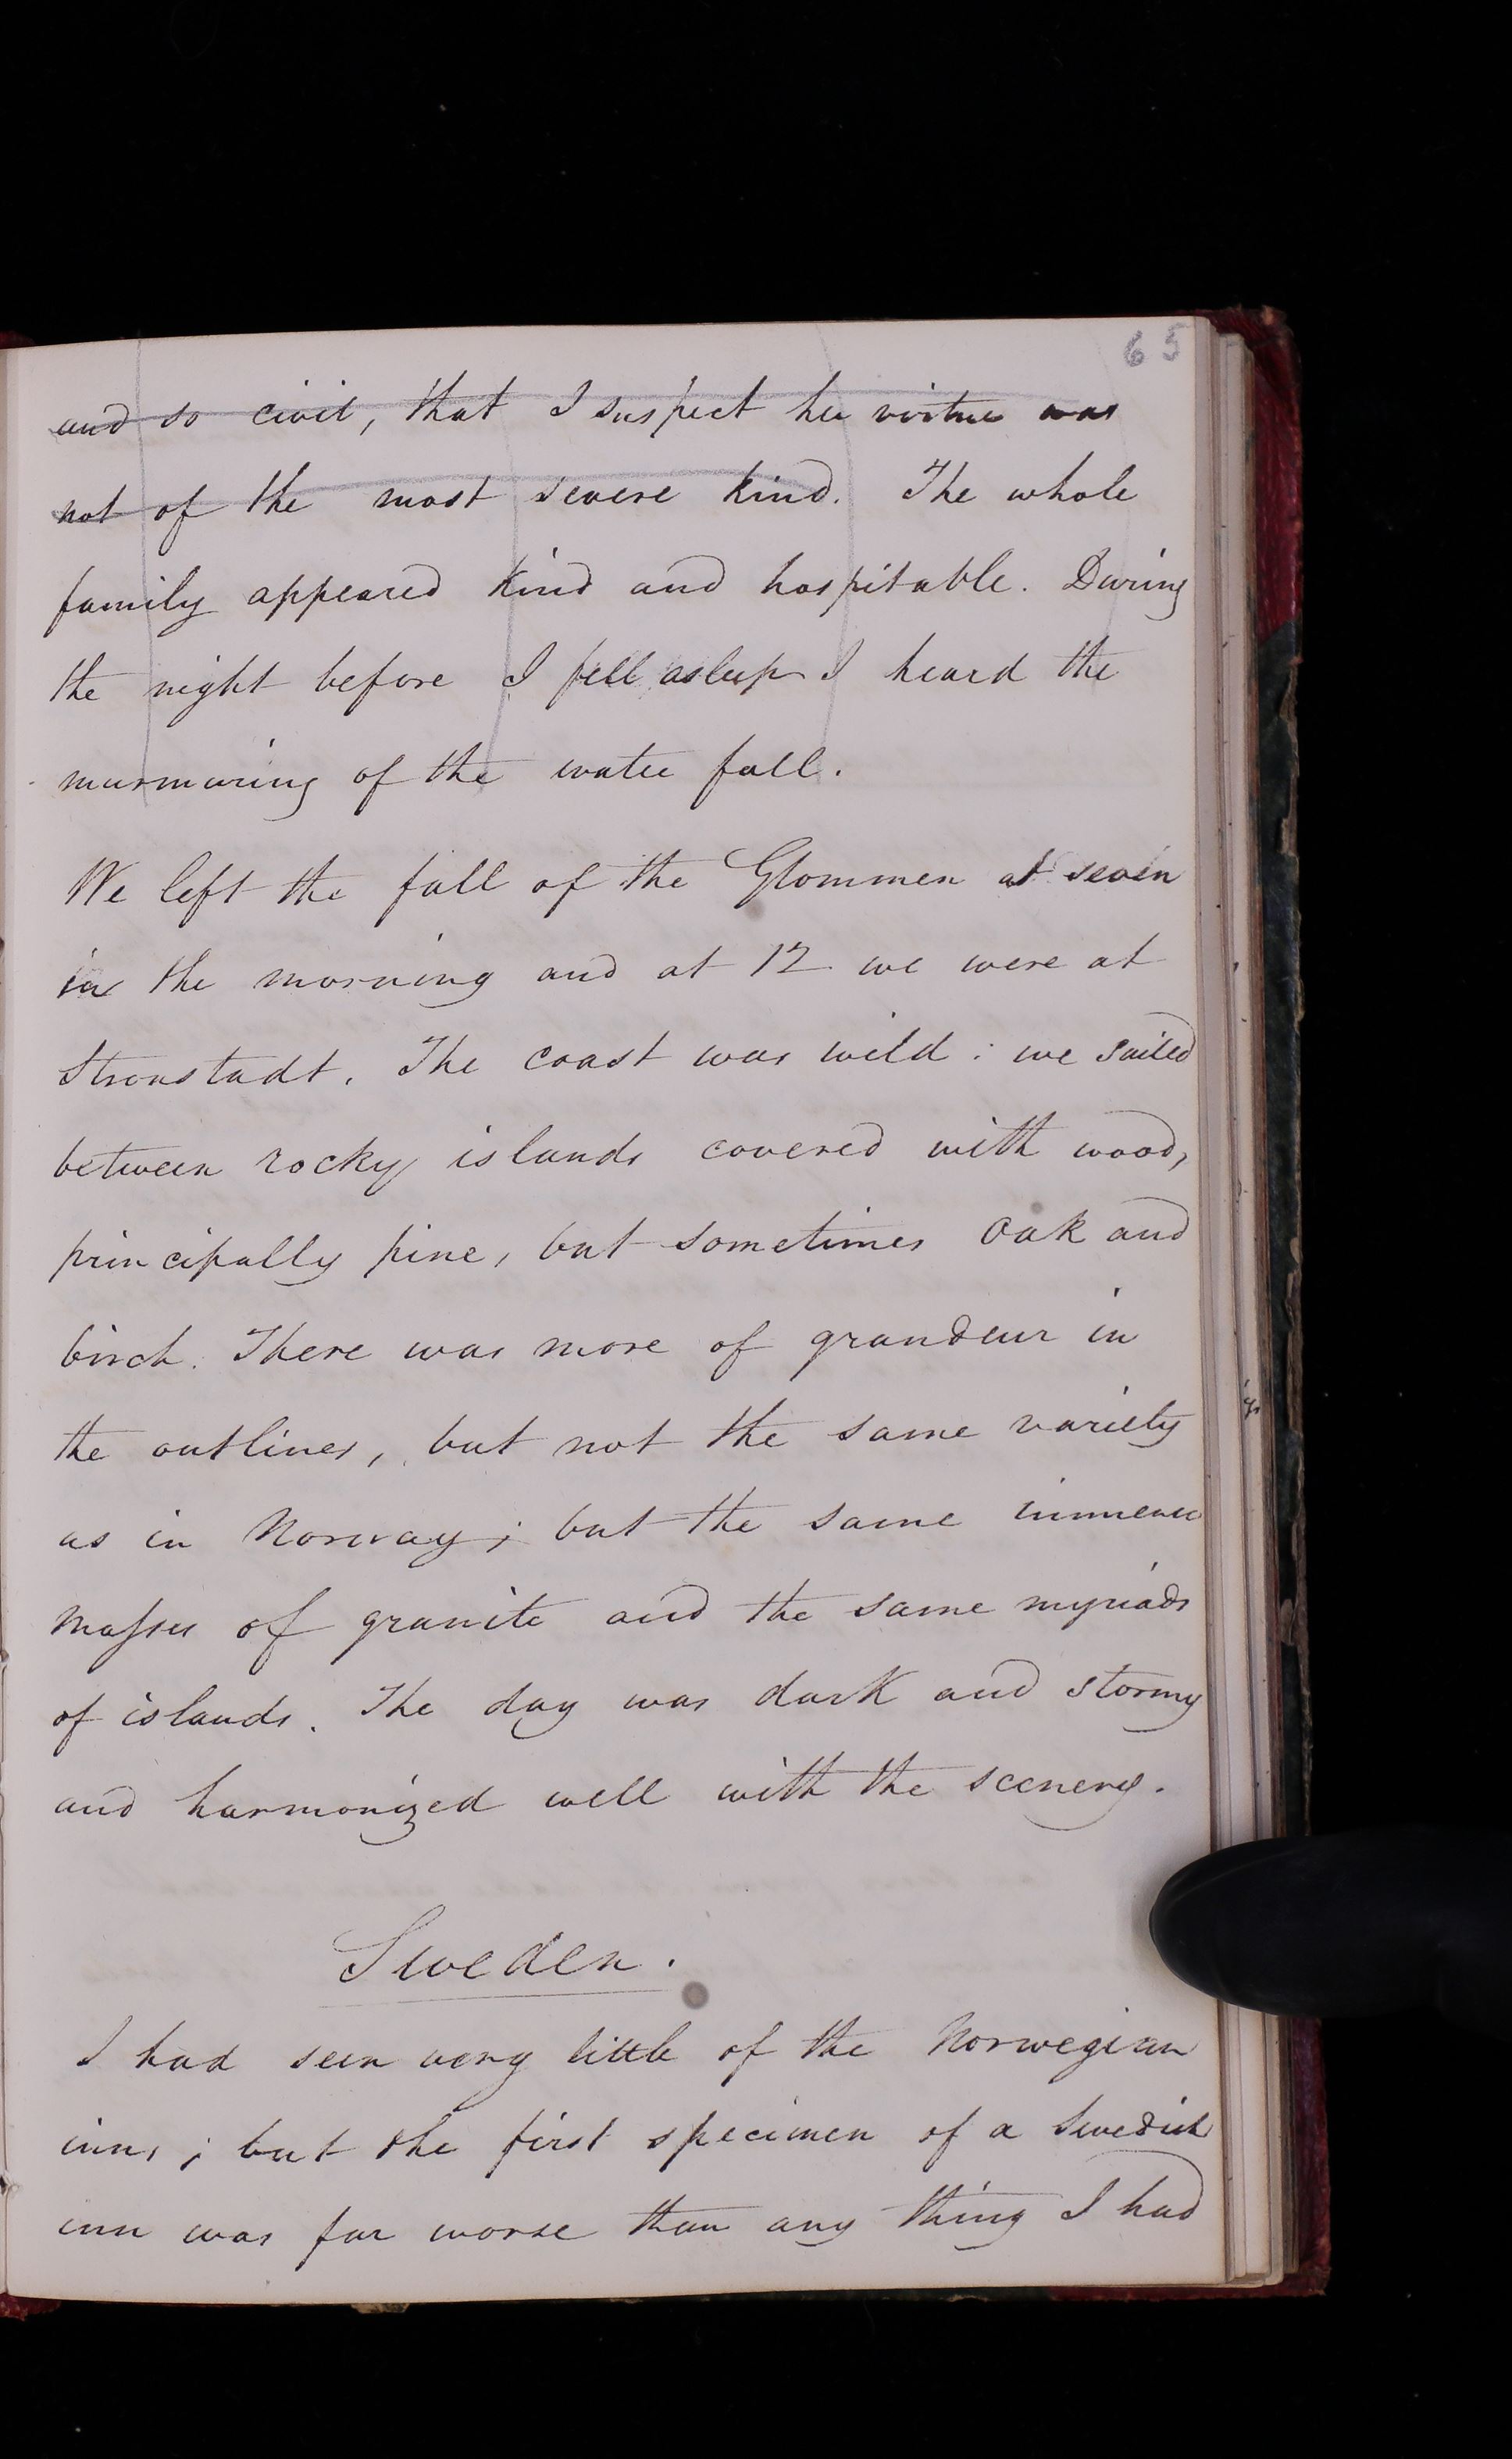 65
and so civil, that I suspect her virtue was
not of the most severe kind. The whole
family appeared kind and hospitable. During
the night before I fell asleep I heard the
murmuring of the water fall.
We left the fall of the Glommen at seven
in the morning and at 12 we were at
Stronstadt. The coast was wild: we sailed
between rocky islands covered with wood,
principally pine, but sometimes oak and
birch. There was more of grandeur in
the outlines, but not the same variety
as in Norway; but the same immense
masses of granite and the same myriads
of islands. The day was dark and stormy
and harmonized well with the scenery.
Sweden.
I had seen very little of the Norwegian
inns; but the first specimen of a Swedish
inn was far worse than any thing I had